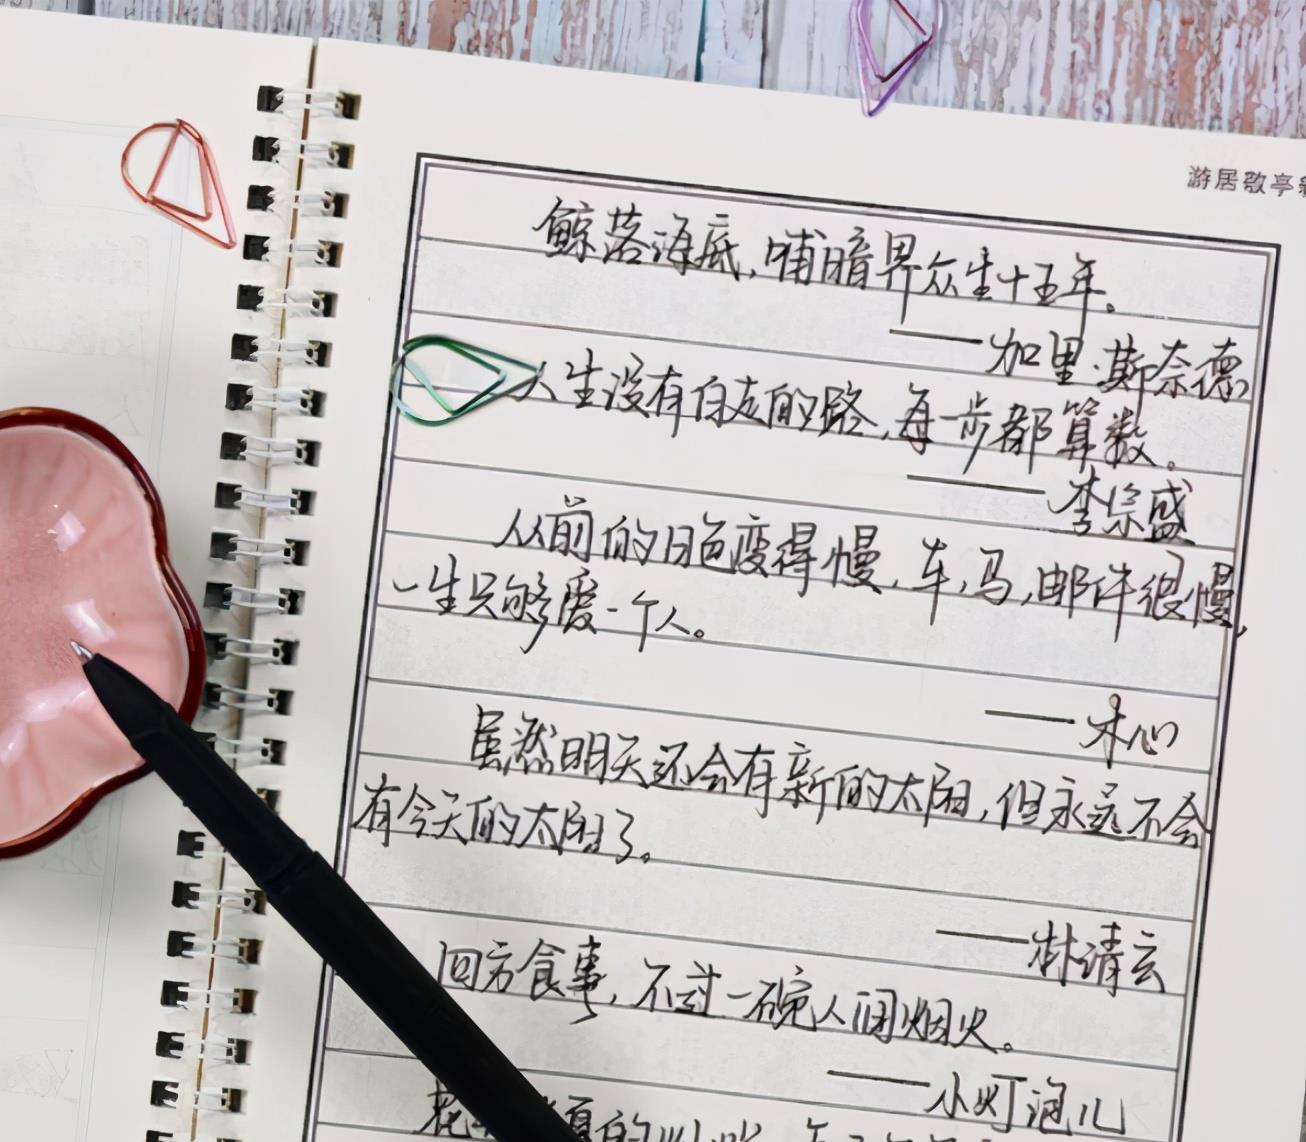 游居敬亭
鲸落海底,哺暗界众生十五年。
——加里·斯奈德
人生没有白走的路,每一步都算数。
——李宗盛
从前的日色变得慢,车,马,邮件很慢,
一生只够爱一个人。
——木心
虽然明天还会有新的太阳,但永远不会
有今天的太阳了。
——林清玄
四方食事,不过一碗人间烟火。
——小灯泡儿
花 的